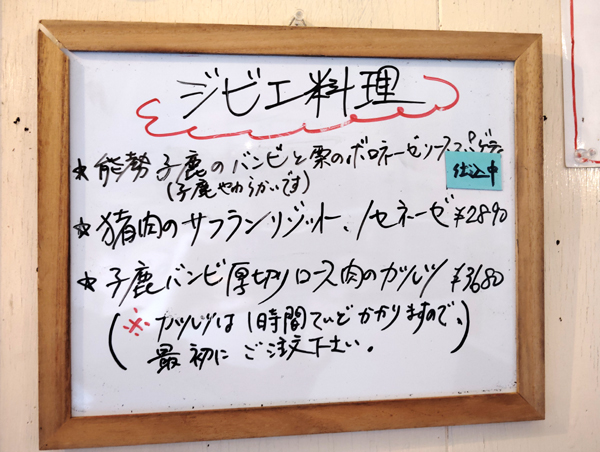 ジビエ料理
★能勢子鹿のバンビと栗のボロネーゼソーススパゲティ
(子鹿やわらかいです)
仕込中
★猪肉のサフランリゾット、ミラネーゼ ¥2890
★子鹿バンビ厚切りロース肉のカツレツ ¥3680
(※カツレツは1時間ていどかかりますので、
最初にご注文下さい。)